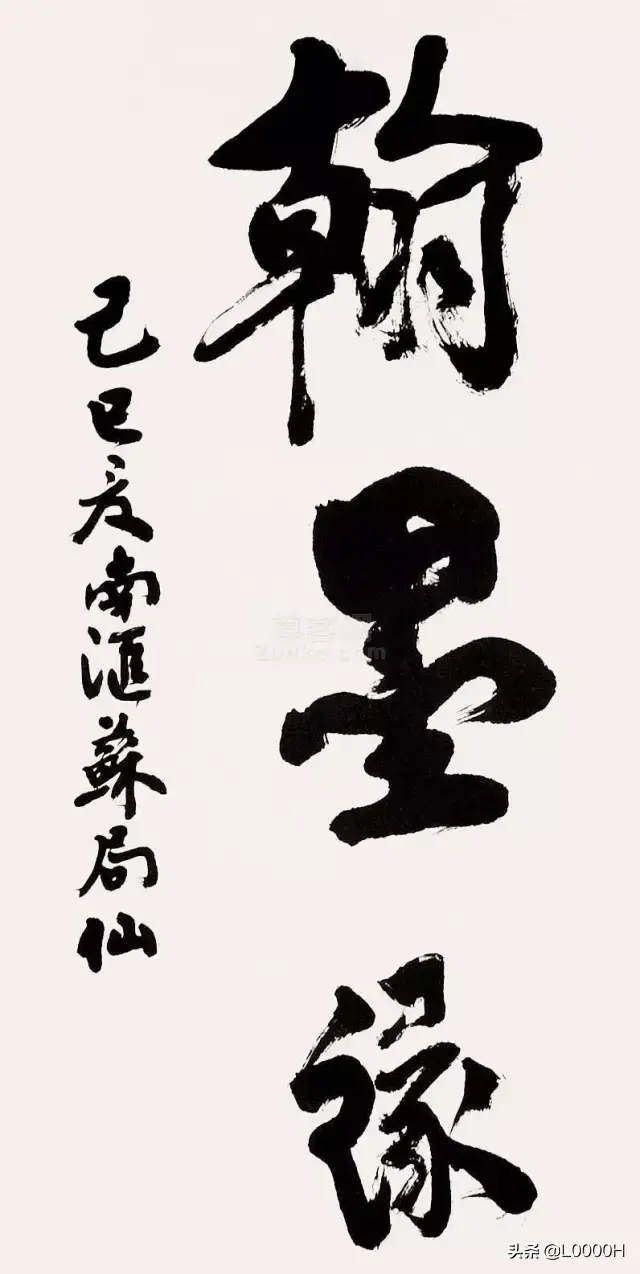 翰墨缘
己巳夏南滙蘇局仙
头条 @L0000H